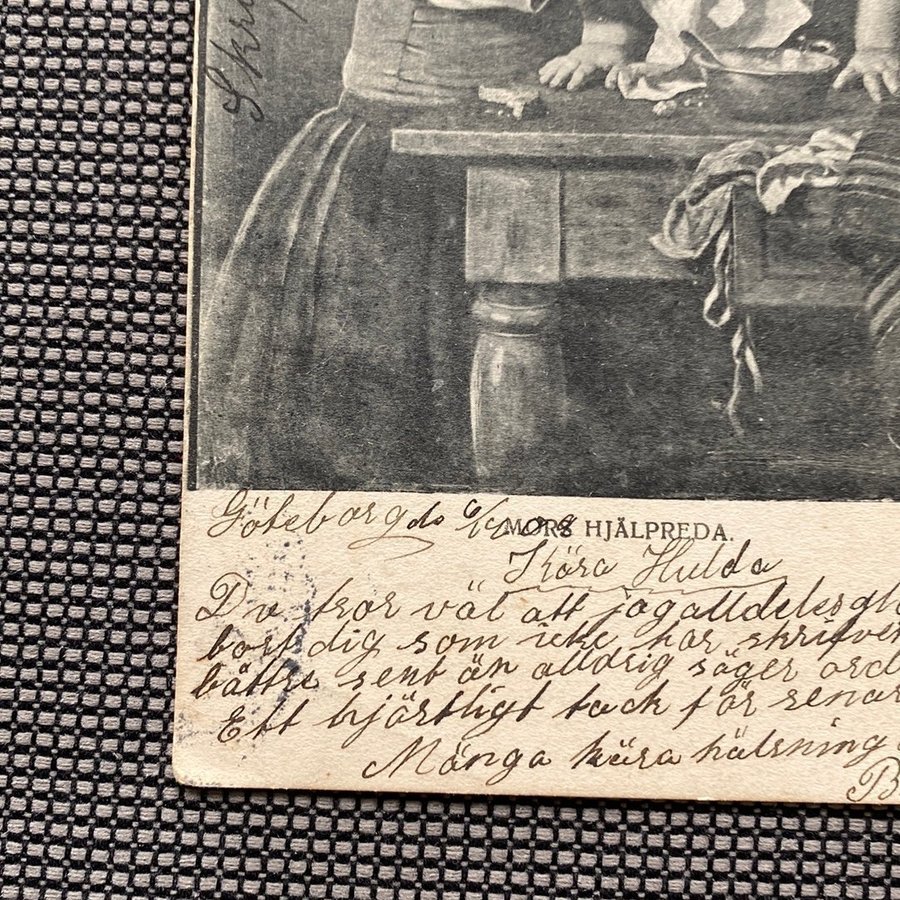 Göteborg do 6/4 08
MORS HJÄLPREDA.
Kära Hulda
Du tror väl att jag alldeles gl
bort dig som icke har skrifvet
bättre sent än alldrig säger ord
Ett hjärtligt tack för senas
Många kära hälsning
B
Skri